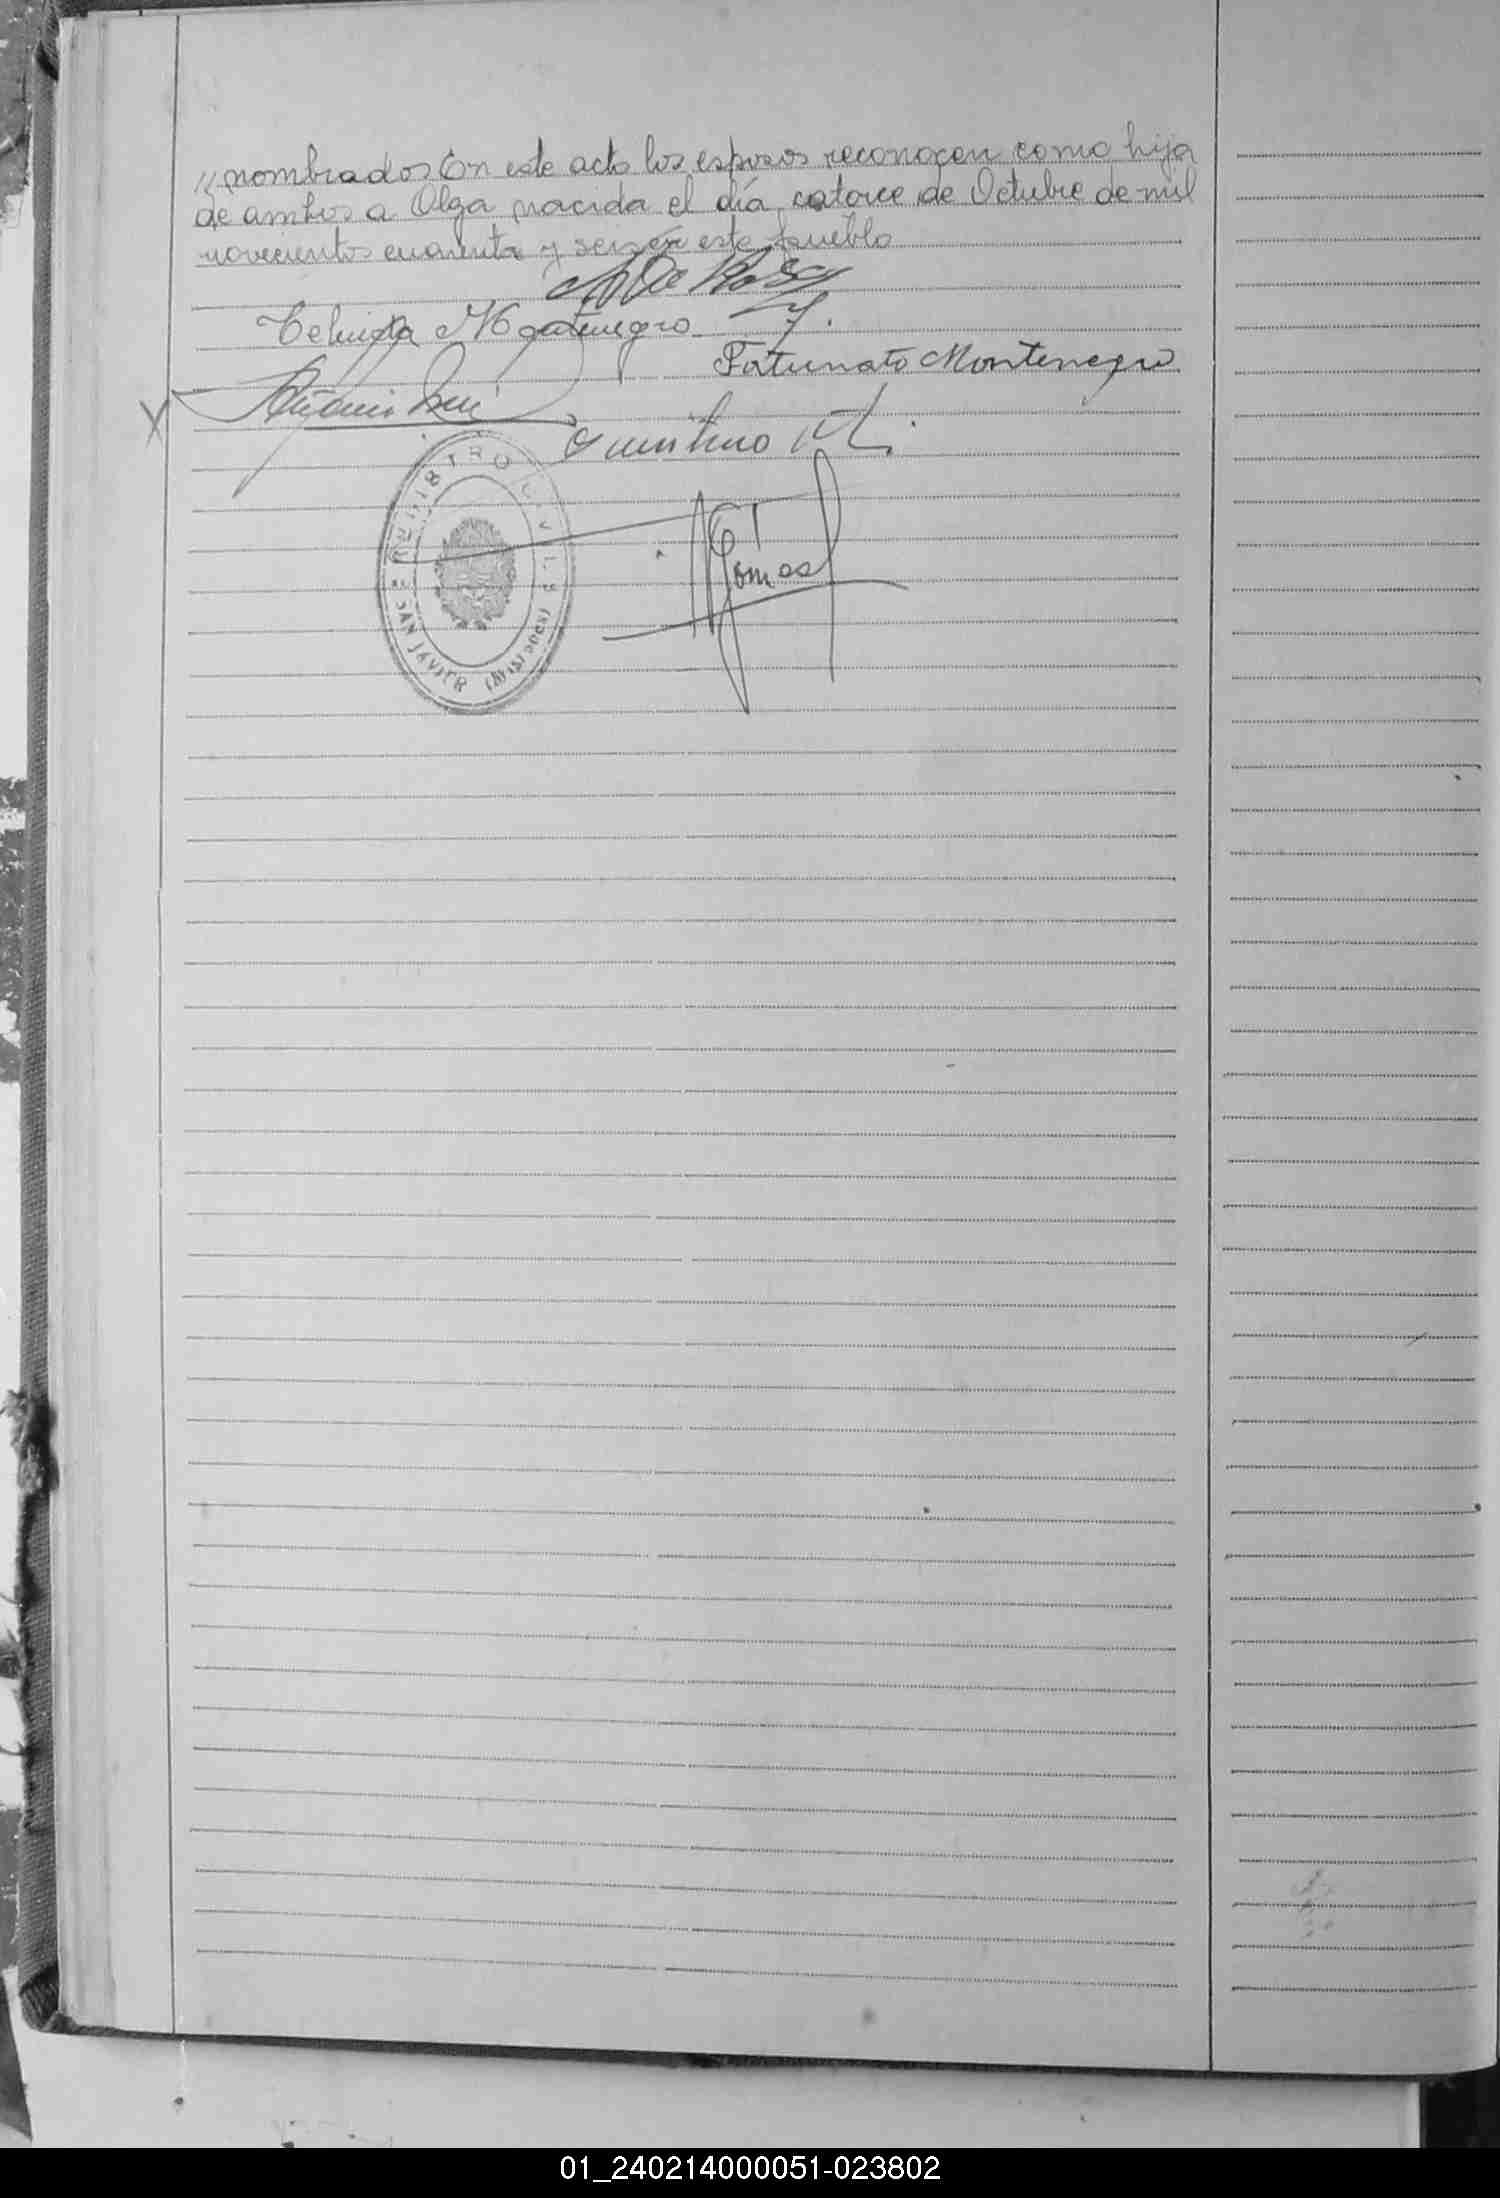 // nombrados En este acto los esposos reconocen como hija
de ambos a Olga nacida el día catorce de Octubre de mil
novecientos cuarenta y seis en este pueblo
Montenegro
Fortunato Montenegro
Antonio
REGISTRO CIVIL
SAN JAVIER (MISIONES)
Gomes
01_240214000051-023802